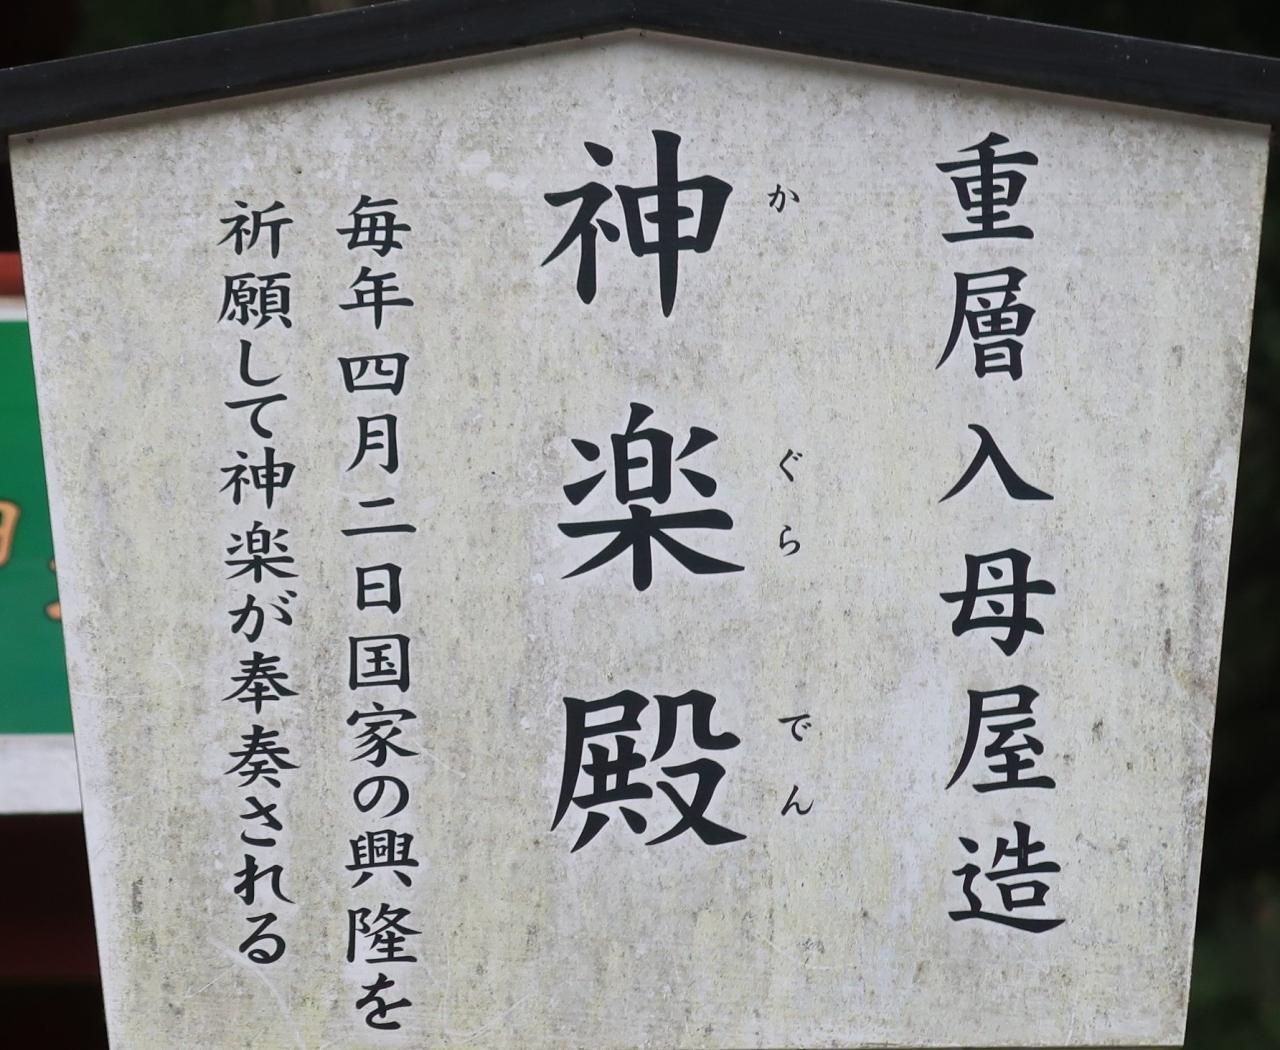 重層入母屋造
かぐらでん
神楽殿
毎年四月二日国家の興隆を
祈願して神楽が奉奏される